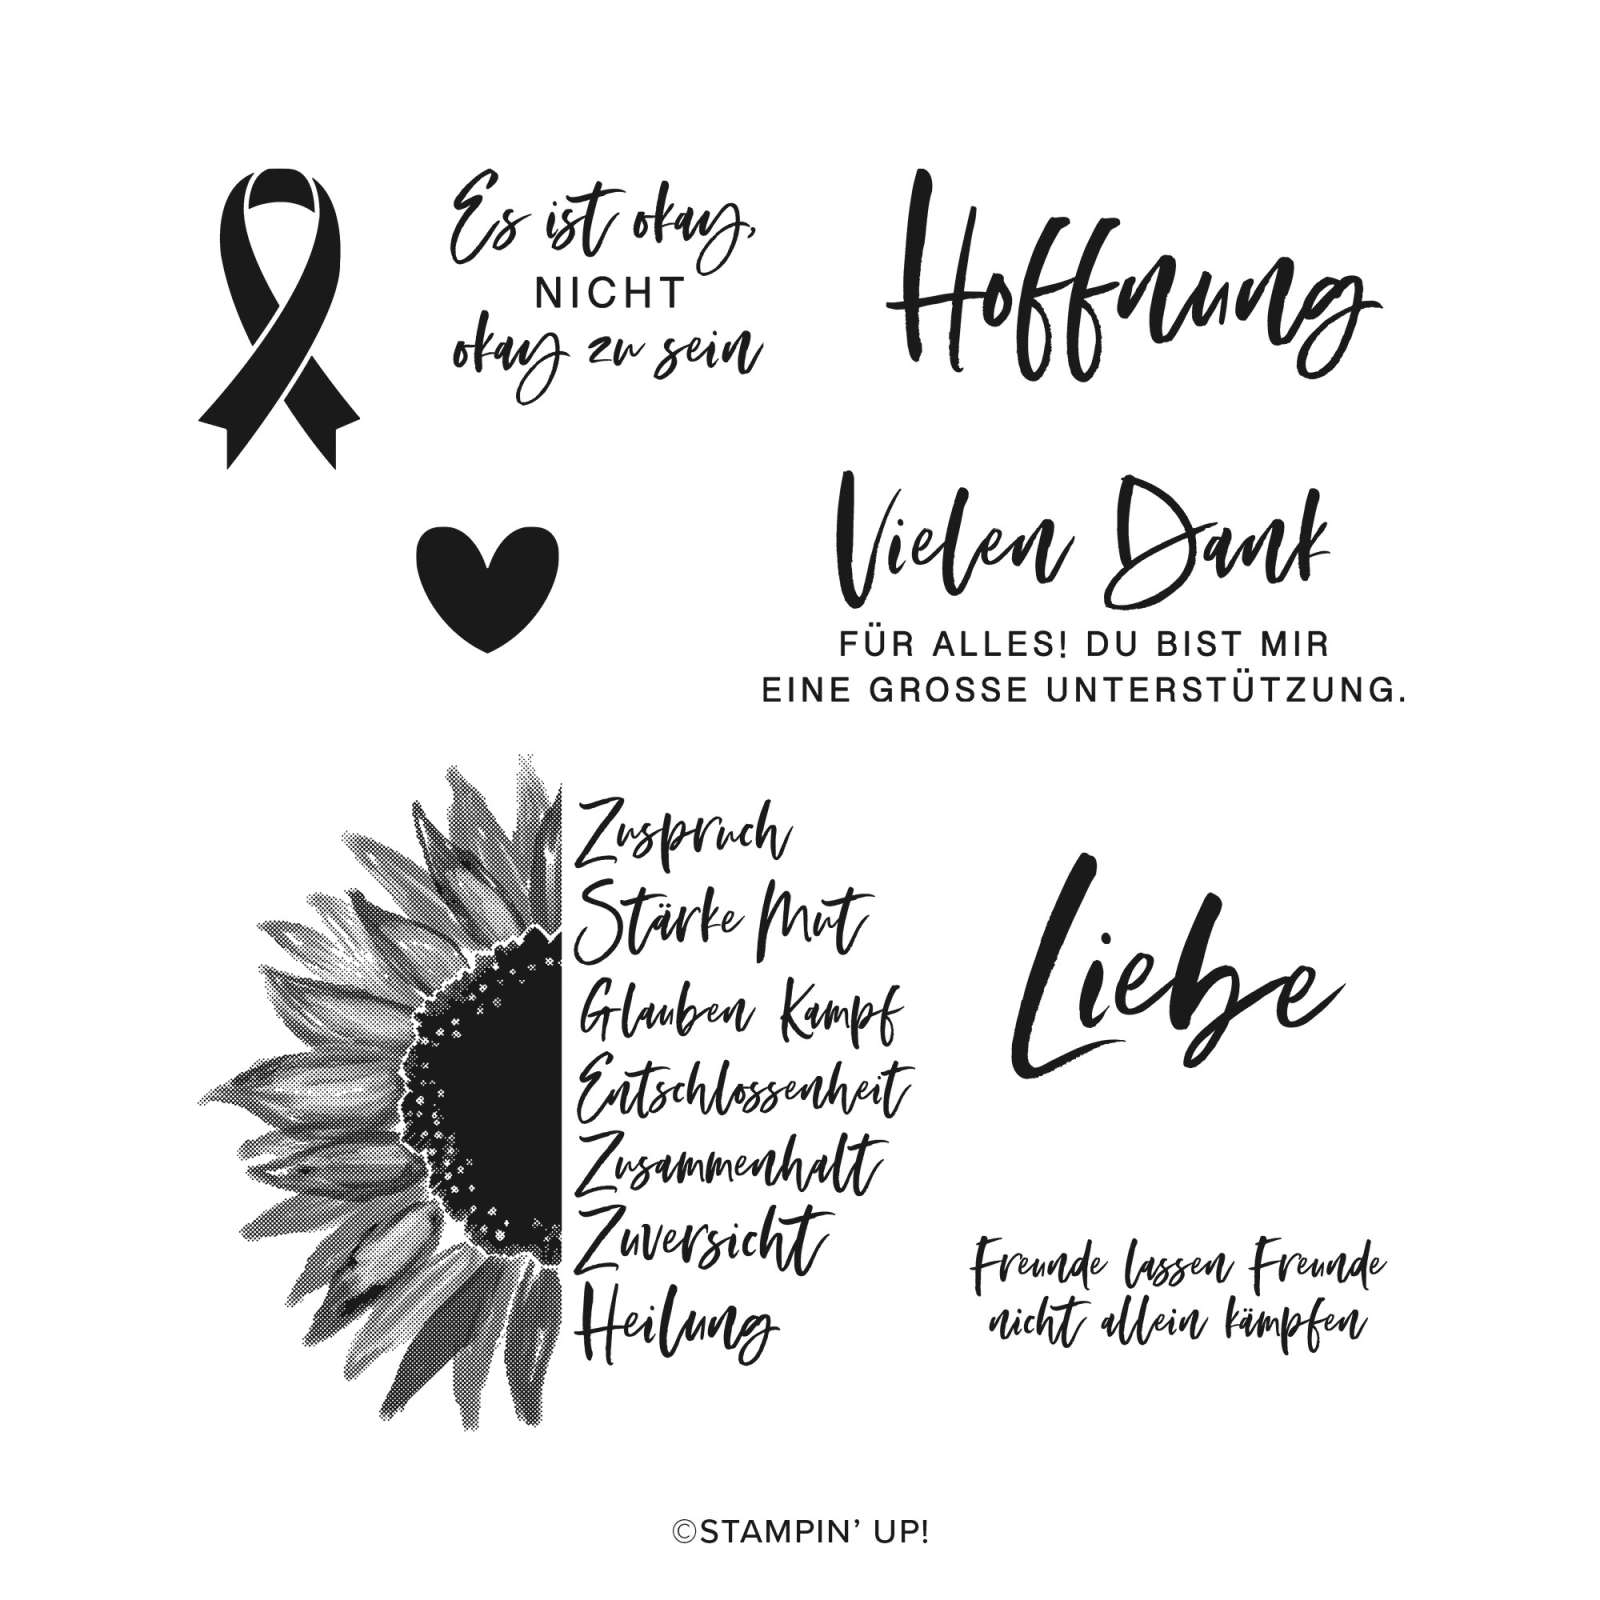 Es ist okay,
NICHT
okay zu sein
Hoffnung
Vielen Dank
FÜR ALLES! DU BIST MIR
EINE GROSSE UNTERSTÜTZUNG.
Zuspruch
Stärke Mut
Glauben Kampf
Entschlossenheit
Zusammenhalt
Zuversicht
Heilung
Liebe
Freunde lassen Freunde
nicht allein kämpfen
©STAMPIN' UP!